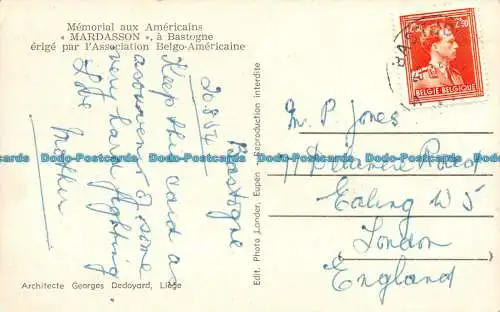 Mémorial aux Américains
« MARDASSON », à Bastogne
érigé par l'Association Belgo-Américaine
20.8.57
Bastogne
Keep this card as
a souvenir of some
very hard fighting
Love
Mother
Architecte Georges Dedoyard, Liège
Edit. Photo Lander, Eupen Reproduction interdite
2F50
BELGIE BELGIQUE
M. P. Jones
Road
Ealing W5
London
England
Dodo-Postcards Dodo-Postcards Dodo-Postcards Dodo-Postcards Dodo-Postcards